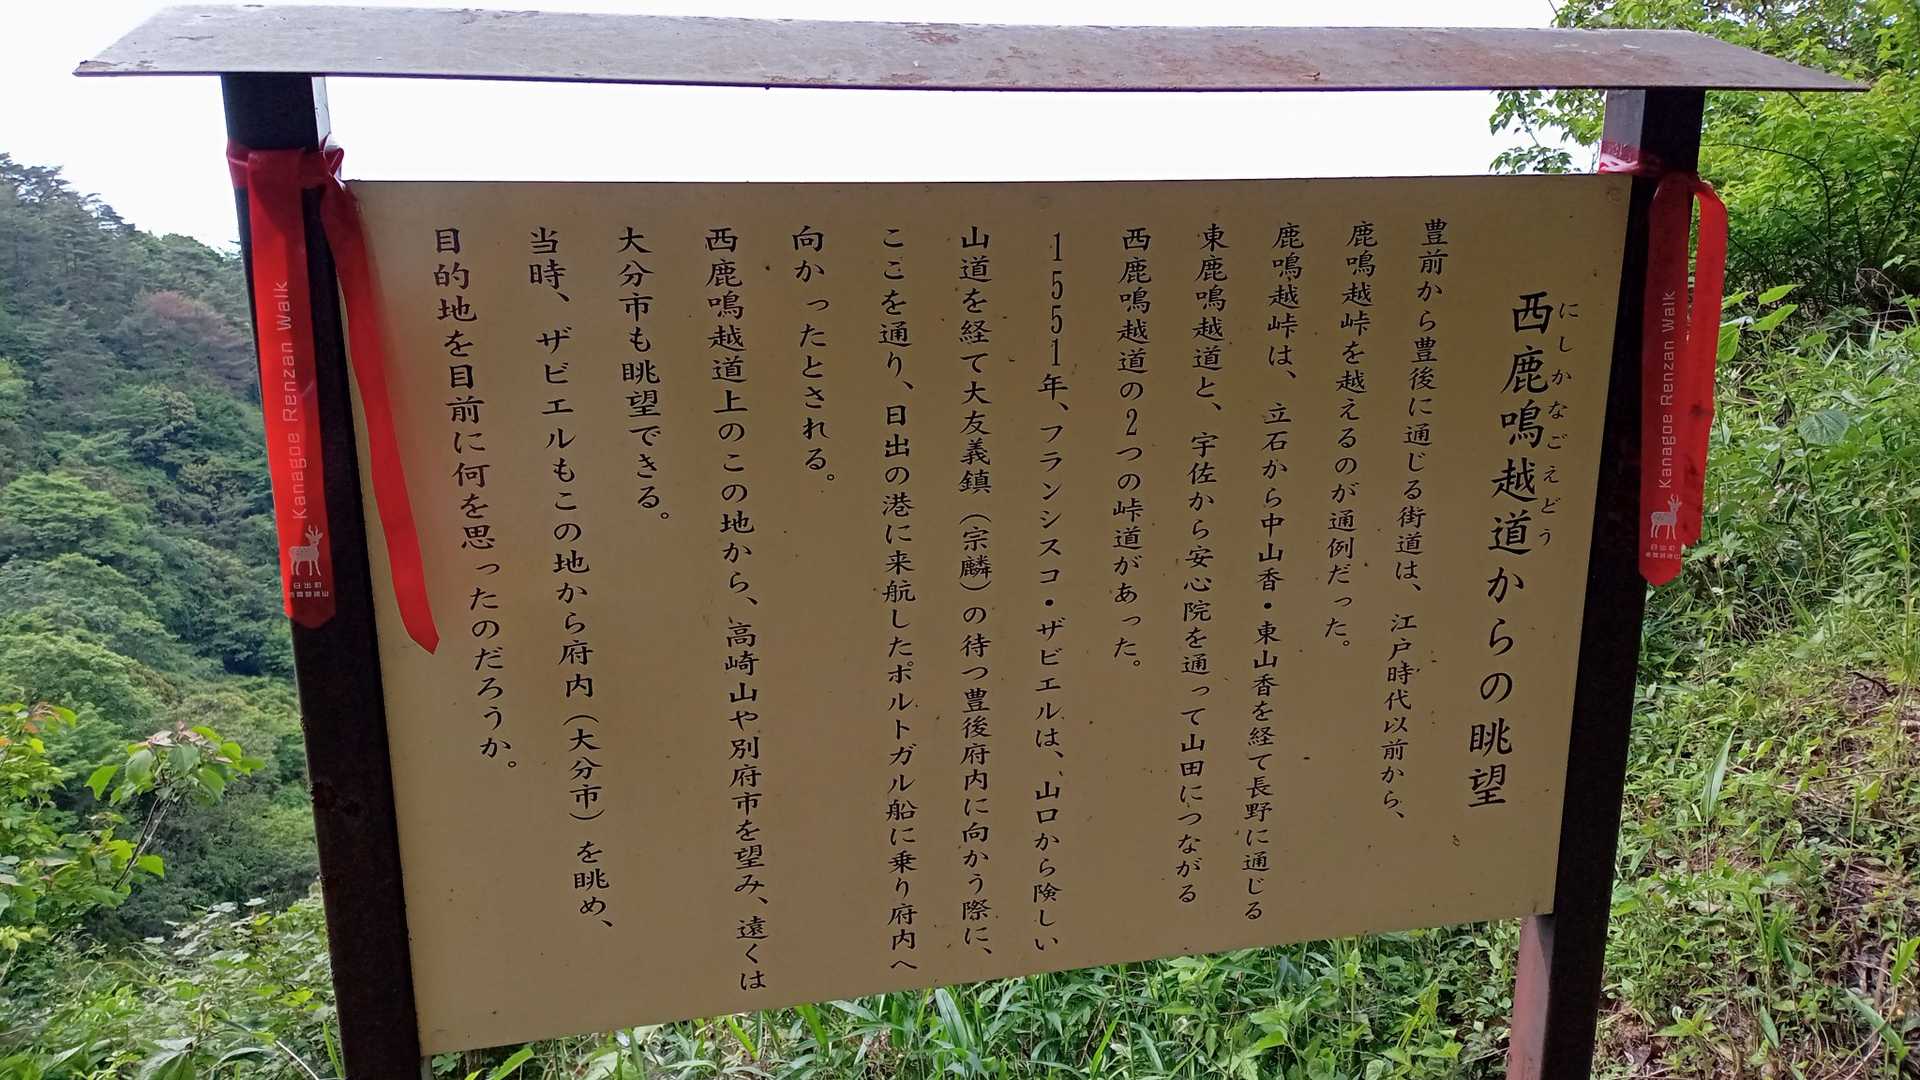 西鹿鳴越道からの眺望
にしかなごえどう
豊前から豊後に通じる街道は、江戸時代以前から、
鹿鳴越峠を越えるのが通例だった。
鹿鳴越峠は、立石から中山香・東山香を経て長野に通じる
東鹿鳴越道と、宇佐から安心院を通って山田につながる
西鹿鳴越道の2つの峠道があった。
1551年、フランシスコ・ザビエルは、山口から険しい
山道を経て大友義鎮（宗麟）の待つ豊後府内に向かう際に、
ここを通り、日出の港に来航したポルトガル船に乗り府内へ
向かったとされる。
西鹿鳴越道上のこの地から、高崎山や別府市を望み、遠くは
大分市も眺望できる。
当時、ザビエルもこの地から府内（大分市）を眺め、
目的地を目前に何を思ったのだろうか。
Kanagoe Renzan Walk
日出町
Kanagoe Renzan Walk
日出町